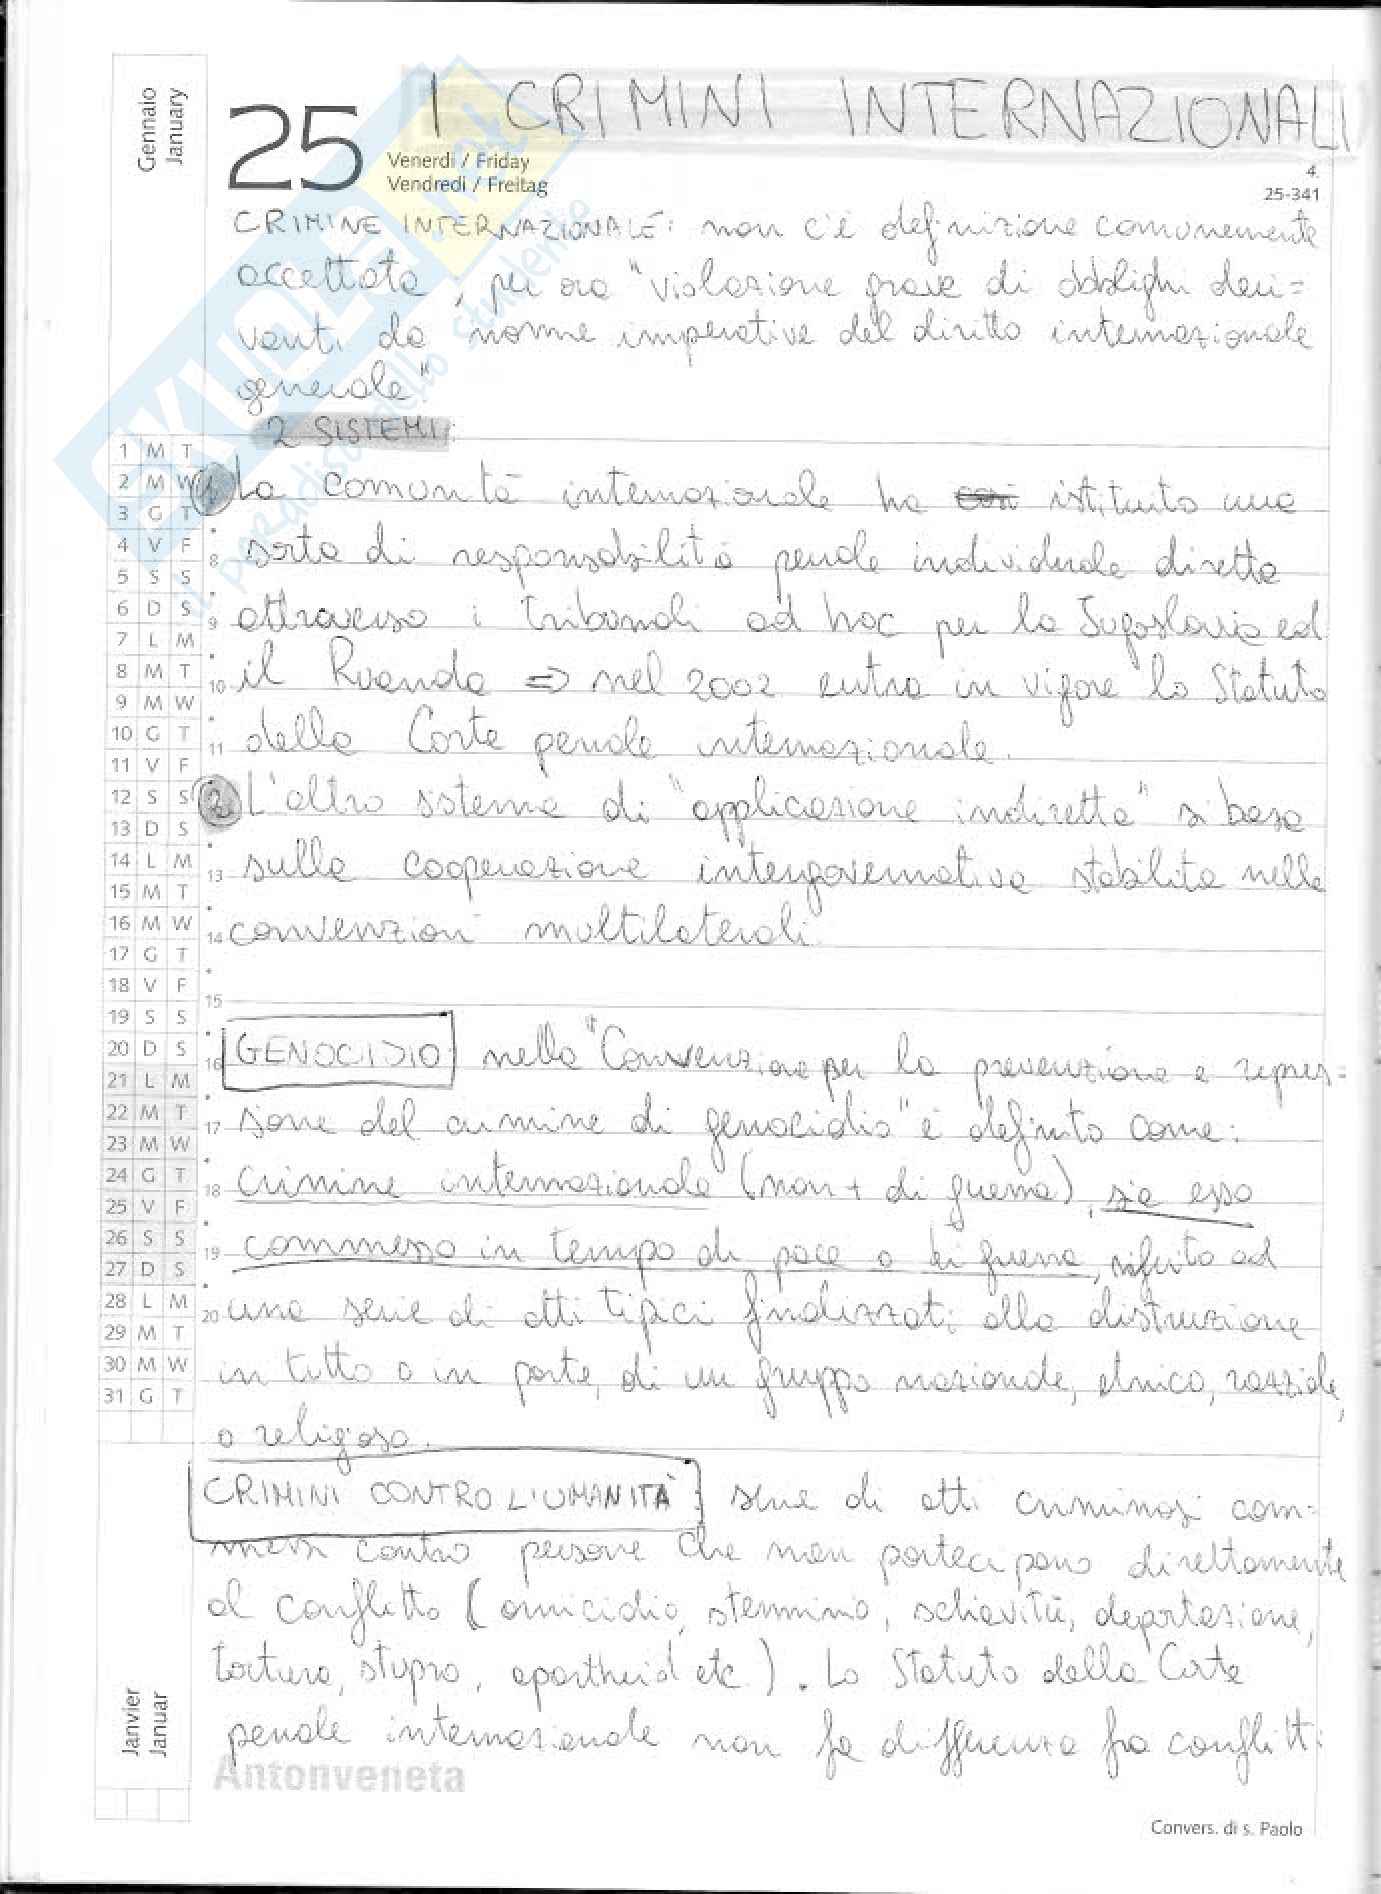 Gennaio
January
25
I CRIMINI INTERNAZIONALI
Venerdì / Friday
Vendredi / Freitag
4.
25-341
CRIMINE INTERNAZIONALE: non c'è definizione comunemente
accettata, per ora "violazione grave di obblighi deri=
vanti da norme imperative del diritto internazionale
generale"
2 SISTEMI:
1. La comunità internazionale ha così istituito una
sorta di responsabilità penale individuale diretta
attraverso i tribunali ad hoc per la Jugoslavia ed
il Ruanda => nel 2002 entra in vigore lo Statuto
della Corte penale internazionale.
2. L'altro sistema di "applicazione indiretta" si basa
sulla cooperazione intergovernativa stabilita nelle
convenzioni multilaterali.
GENOCIDIO nella "Convenzione per la prevenzione e repres=
sione del crimine di genocidio" è definito come:
crimine internazionale (non + di guerra), sia esso
commesso in tempo di pace o di guerra, riferito ad
una serie di atti tipici finalizzati alla distruzione
in tutto o in parte, di un gruppo nazionale, etnico, razziale,
o religioso.
CRIMINI CONTRO L'UMANITÀ: serie di atti criminosi com=
messi contro persone che non partecipano direttamente
al conflitto (omicidio, sterminio, schiavitù, deportazione,
tortura, stupro, apartheid etc.). Lo Statuto della Corte
penale internazionale non fa differenza fra conflitti
1 M T
2 M W
3 G T
4 V F
5 S S
6 D S
7 L M
8 M T
9 M W
10 G T
11 V F
12 S S
13 D S
14 L M
15 M T
16 M W
17 G T
18 V F
19 S S
20 D S
21 L M
22 M T
23 M W
24 G T
25 V F
26 S S
27 D S
28 L M
29 M T
30 M W
31 G T
8
9
10
11
13
14
15
16
17
18
19
20
Janvier
Januar
Antonveneta
Convers. di s. Paolo
SKUOLA.net
il paradiso dello studente